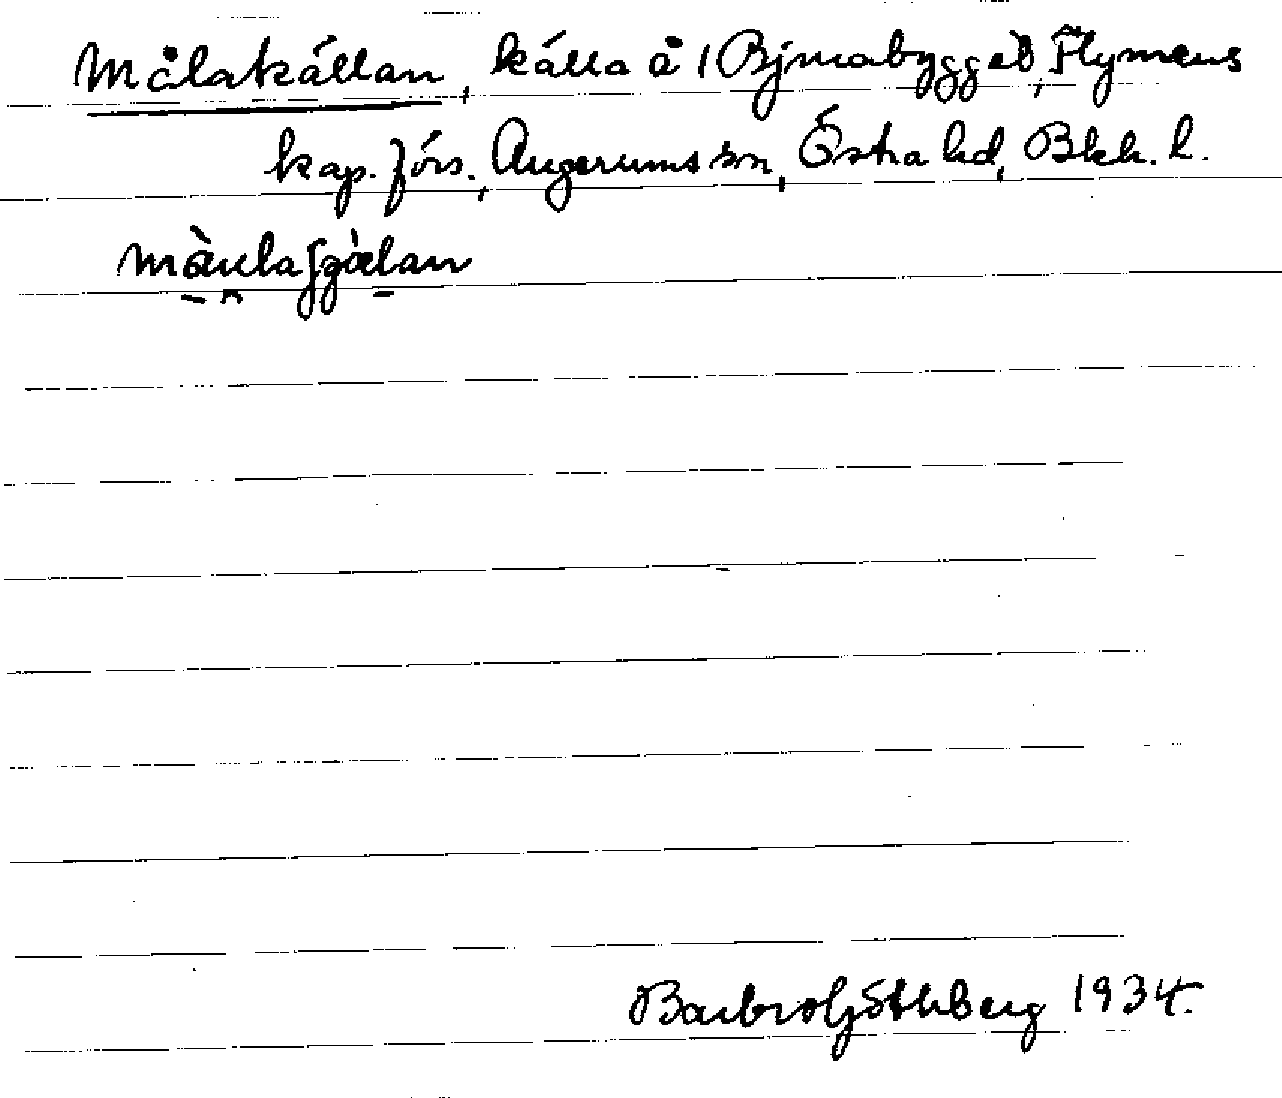 Målakällan, källa å 1 Bjurabygget, Flymens
kap. förs., Augerums sn, Östra hd, Blek. l.
Barbro Göthberg 1934.